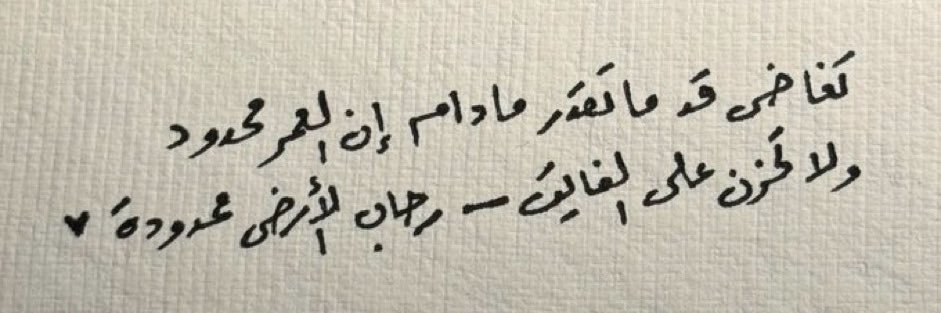 تغاضى قد ما تقدر مادام إن العمر محدود
ولا تحزن على الفايت – رحاب الأرض ممدودة ♥